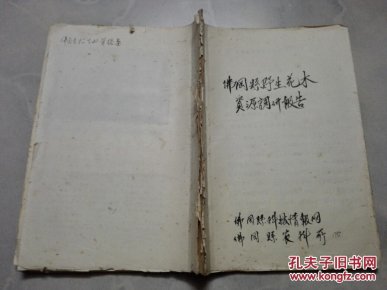 佛冈县野生花木
资源调研报告
佛冈县科技情报网
佛冈县农科所
孔夫子旧书网